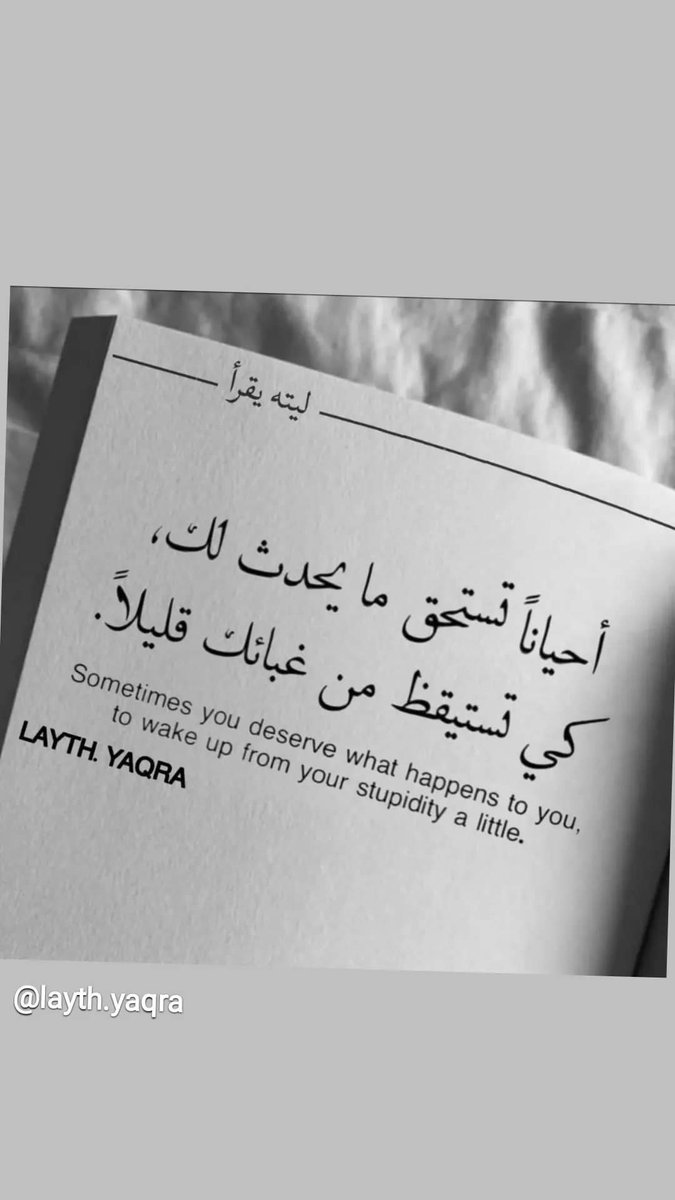 ليته يقرأ
أحياناً تستحق ما يحدث لك،
كي تستيقظ من غبائك قليلاً.
Sometimes you deserve what happens to you,
to wake up from your stupidity a little.
LAYTH. YAQRA
@layth.yaqra